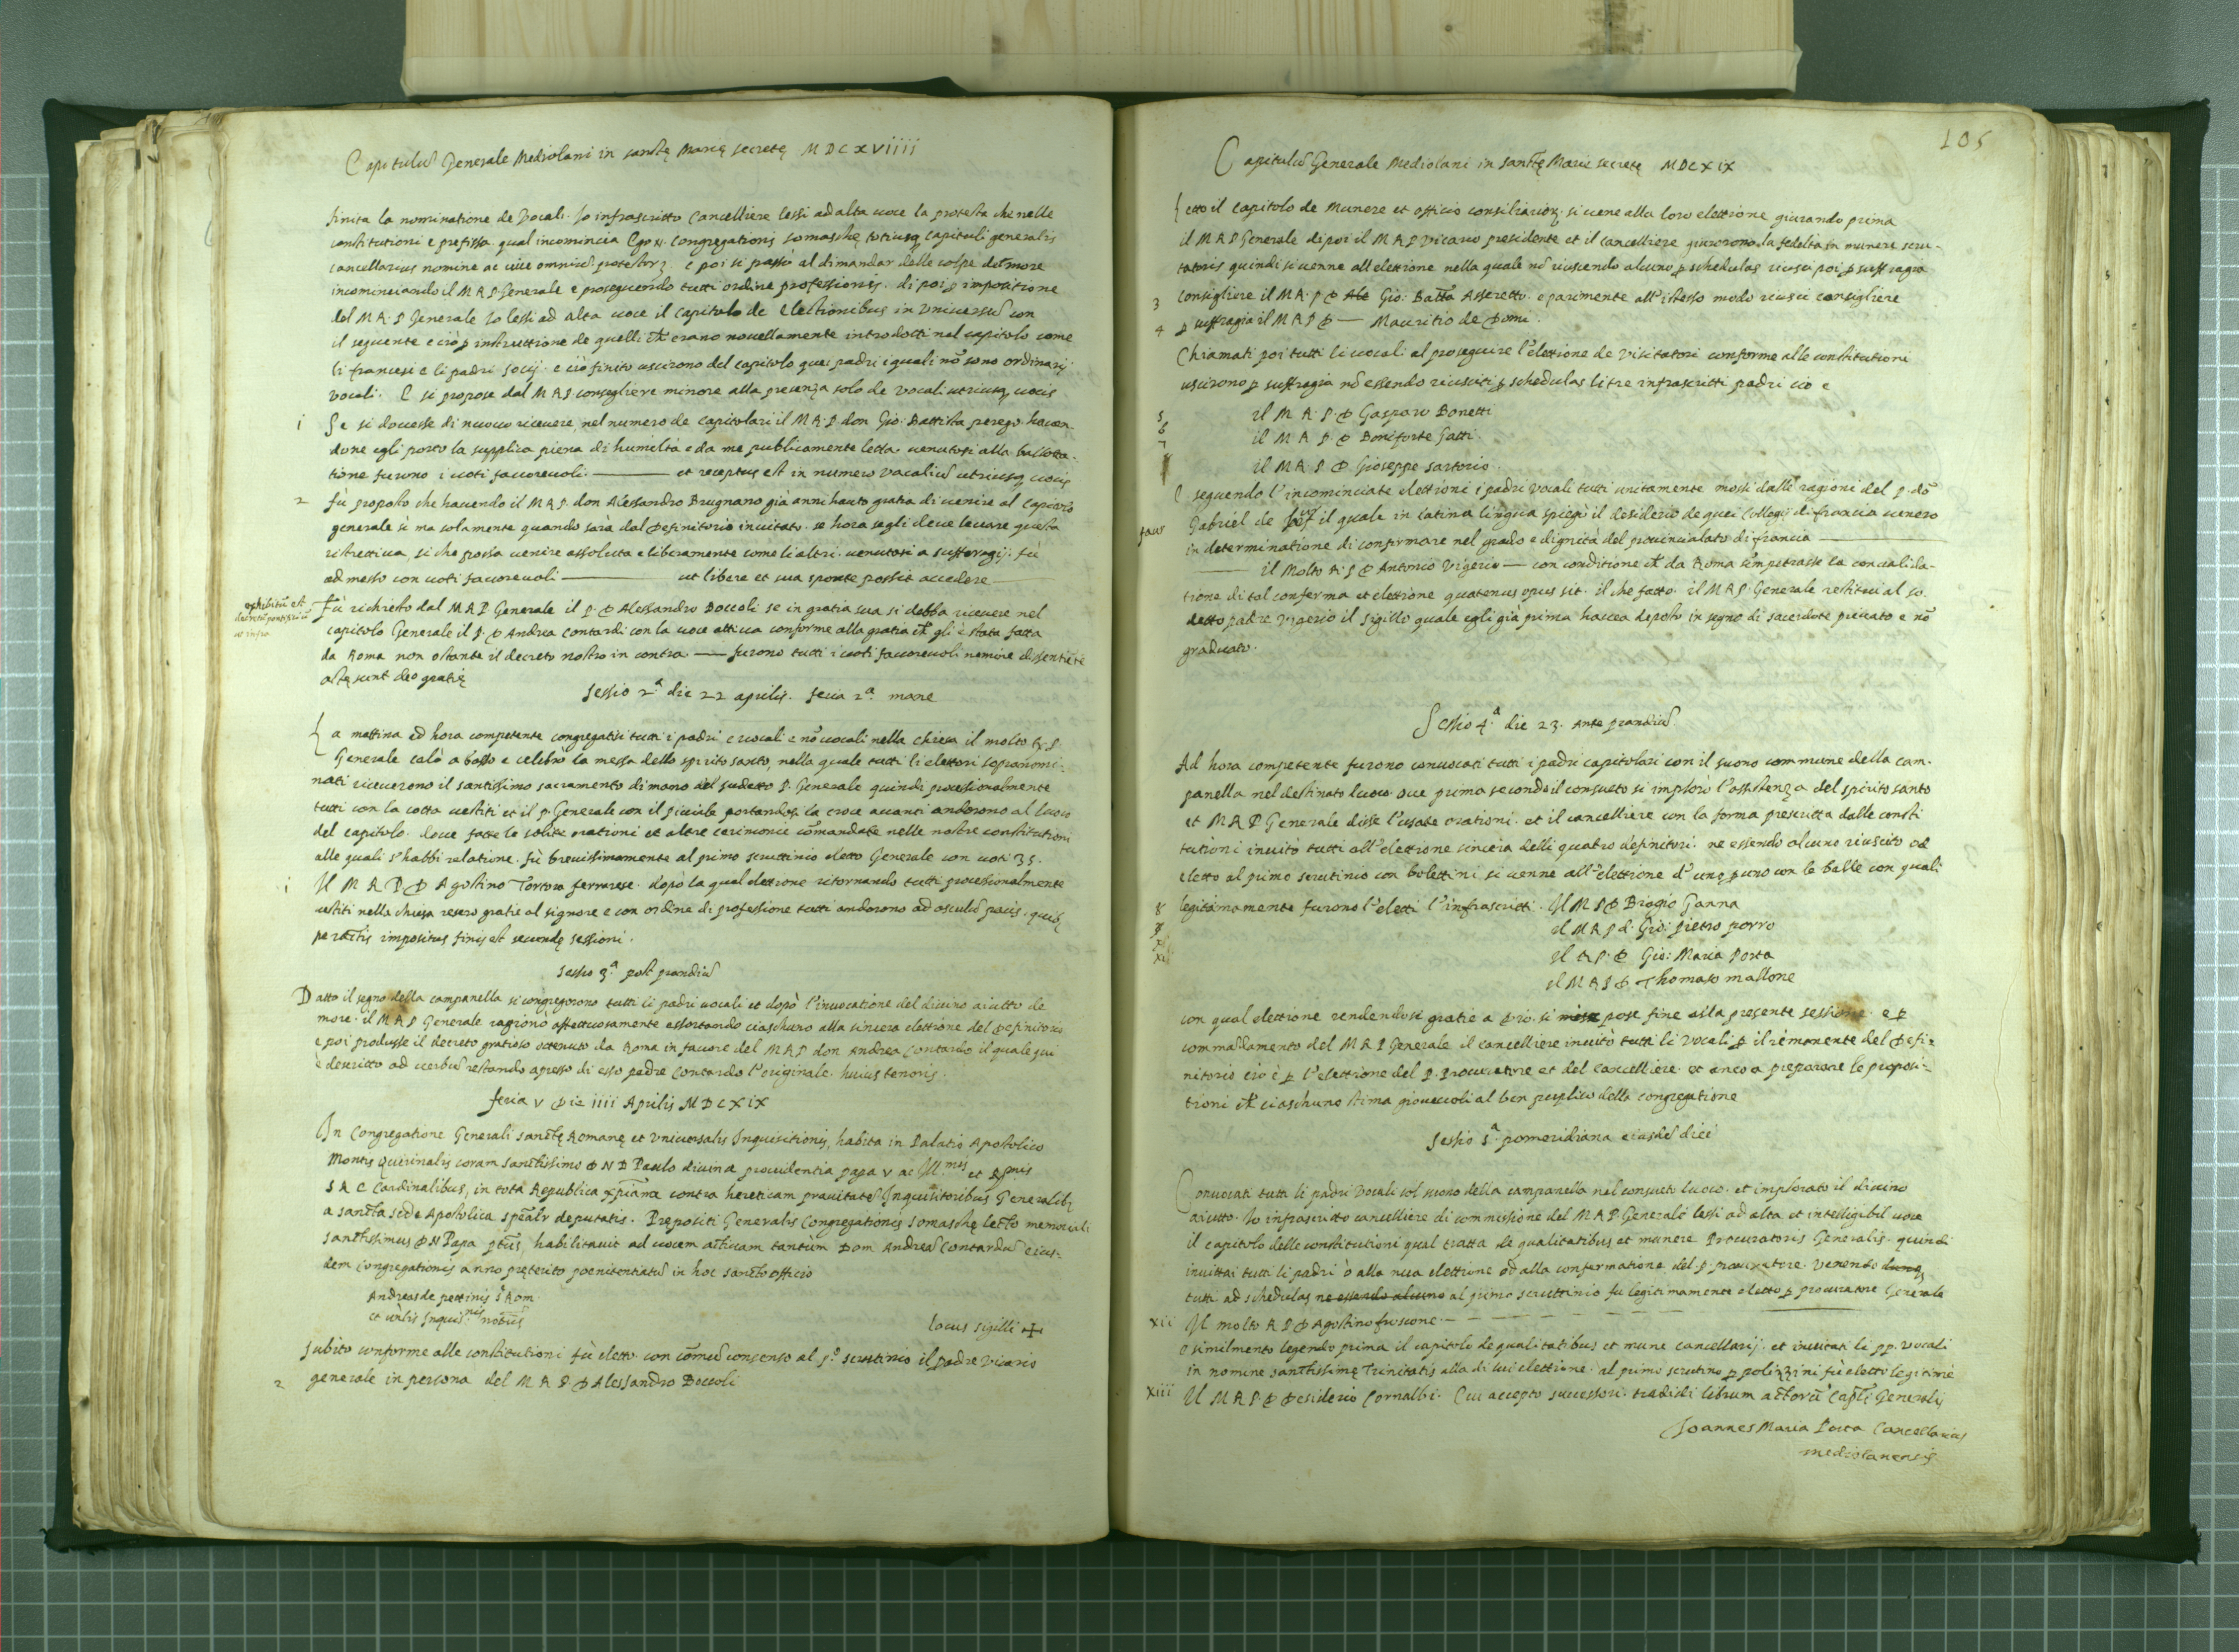 Capitulũ Generale Mediolani in sanctę Marię secretę MDCXVIIII
finita la nominatione de Vocali. Io infrascritto Cancelliere lessi ad alta uoce la protesta che nelle
constitutioni e prefissa qual incomincia Ego N. Congregationis somaschę totiusq capituli generalis
cancellarius nomine ac uice omniũ protestor e poi si passò al dimandar delle colpe de more
incominciando il M R P Generale e proseguendo tutti ordine professionis. di poi ꝑ impositione
del M R P Generale Io lessi ad alta uoce il capitolo de Electionibus in Vniuersũ con
il seguente e ciò ꝑ instruttione de quelli ch̃ erano nouellamente introdotti nel capitolo come
li francesi e li padri socij e ciò finito uscirono del capitolo quei padri i quali nõ sono ordinarij
vocali. E si propose dal M R P consigliere minore alla presenza solo de Vocali utriusq uocis
1 Se si douesse di nuouo riceuere nel numero de capitolari il M R P don Gio: Battista perego hauen-
done egli porto la supplica piena di humiltà e da me publicamente letta. uenutosi alla ballotta-
tione furono i uoti fauoreuoli ——— et receptus est in numero vocaliũ utriusq uocis
2 fù proposto che hauendo il M R P don Alessandro Brugnano già anni hauto gratia di uenire al Capitolo
generale sì ma solamente quando sarà dal Definitorio inuitato. se hora segli deue leuare questa
ristrettiua, si che possa uenire assoluta e liberamente come li altri. uenutosi a suffragij. fù
admesso con uoti fauoreuoli ——— ut libere et sua sponte possit accedere
exhibitũ est
decretũ pontificiũ
ut infra
Fù richiesto dal M R P Generale il P. D Alessandro Boccoli se in gratia sua si debba riceuere nel
capitolo Generale il P. D Andrea Contardi con la uoce attiua conforme alla gratia ch̃ gli è stata fatta
da Roma non ostante il decreto nostro in contra —— furono tutti i uoti fauoreuoli nemine dissentiẽte
actę sunt deo gratię
Sessio 2.ª die 22 aprilis. feria 2.ª mane
La mattina ad hora competente congregatisi tutti i padri e uocali e nõ uocali nella chiesa il molto R. P.
Generale calò a basso e celebrò la messa dello spirito santo, nella quale tutti li elettori sopranomi-
nati riceuerono il santissimo sacramento di mano del sudetto P. Generale quindi processionalmente
tutti con la cotta uestiti et il P. Generale con il piuiale portandosi la croce auanti andorono al luoco
del capitolo. doue fatte le solite orationi et altre cerimonie cõmandate nelle nostre constitutioni
alle quali s'habbi relatione. fù breuissimamente al primo scruttinio eletto Generale con uoti 35.
1 Il M R P D Agostino Tortora ferrarese. dopò la qual elettione ritornando tutti processionalmente
uestiti nella chiesa resero gratie al signore e con ordine di professione tutti andorono ad osculũ pacis. quib
peractis impositus finis est secundę sessioni.
Sessio 3.ª post prandiũ
Datto il segno della campanella si congregorono tutti li padri uocali et dopò l'inuocatione del diuino aiutto de
more. il M R P Generale ragionò affettuosamente essortando ciaschuno alla sincera elettione del Definitorio
e poi produsse il decreto gratioso ottenuto da Roma in fauore del M R P don Andrea Contardo il quale qui
è descritto ad uerbũ restando apresso di esso padre Contardo l'originale. huius tenoris.
feria V Die IIII Aprilis MDCXIX
In Congregatione Generali sanctę Romanę et Vniuersalis Inquisitionis, habita in Palatio Apostolico
Montis Quirinalis coram sanctissimo D N D Paulo diuina prouidentia papa V ac Ill.mis et R.mis
S R E Cardinalibus, in tota Republica xp̃iana contra hereticam prauitatẽ Inquisitoribus Generalibꝫ
a sancta sede Apostolica spẽalr deputatis. Prepositi Generalis Congregationis Somaschę lecto memoriali
sanctissimus D N Papa p̃tus habilitauit ad uocem actiuam tantùm Dom Andreã Contardũ eius-
dem Congregationis anno preterito poenitentiatũ in hoc sancto officio
Andreas de pettinis S. Rom.
et uñlis Inquis.nis notarius
locus sigilli ✠
Subito conforme alle constitutioni fù eletto con cõmũ consenso al p.º scruttinio il padre Vicario
2 generale in persona del M R P D Alessandro Boccoli
105
Capitulũ Generale Mediolani in sanctę Marię secretę MDCXIX
Letto il Capitolo de Munere et officio consiliarioꝝ. si uene alla loro elettione giurando prima
il M R P Generale dipoi il M R P Vicario presidente et il cancelliere giurorono la fedeltà in munere scru-
tatoris quindi si uenne all elettione nella quale nõ riuscendo alcuno ꝑ schedulas riuscì poi ꝑ suffragia
3 consigliere il M R P D Ale Gio: Batt̃a Asseretto. e parimente all'istesso modo riusci consigliere
4 ꝑ suffragia il M R P D — Mauritio de Domi.
Chiamati poi tutti li uocali al proseguire l'elettione de Visitatori conforme alle constitutioni
uscirono ꝑ suffragia nõ essendo riusciti ꝑ schedulas li tre infrascritti padri cio e
5 il M R. P. D Gasparo Bonetti
6 il M R P. D Boniforte Gatti.
7 il M R. P D Gioseppe sartorio.
E seguendo l'incominciate elettioni i padri vocali tutti unitamente mossi dalle ragioni del p. dõ
Gabriel de il quale in latina lingua spiegò il desiderio de quei Collegij di francia uenero
in determinatione di confirmare nel grado e dignità del prouincialato di francia ———
—— il Molto R. P D Antonio Vigerio — con conditione ch̃ da Roma s'impetrasse la conualida-
tione di tal conferma et elettione quatenus opus sit. il che fatto. il M R P. Generale restitui al so.
detto padre Vigerio il sigillo quale egli già prima hauea deposto in segno di sacerdote priuato e nõ
graduato.
Sessio 4.ª die 23. Ante prandiũ
Ad hora competente furono conuocati tutti i padri capitolari con il suono commune della cam-
panella nel destinato luoco. oue prima secondo il consueto si implorò l'assistenza del spirito santo
et M R P Generale disse l'usate orationi. et il cancelliere con la forma prescritta dalle consti
tutioni inuitò tutti all'elettione sincera delli quatro definitori. ne essendo alcuno riuscito od
eletto al primo scrutinio con bolettini si uenne all'elettione d'uno ꝑ uno con le balle con quali
8 legitimamente furono l'eletti l'infrascritti. Il M P D Biagio Ganna
il M R P d. Gio: pietro porro
il R P. D Gio: Maria Porta
il M R P D Thomaso mallone
con qual elettione rendendosi gratie a Dio. si mise pose fine alla presente sessione. e ꝑ
commãdamento del M R P Generale il cancelliere inuitò tutti li vocali ꝑ il rimanente del Defi-
nitorio cio è ꝑ l'elettione del P. Procuratore et del Cancelliere. et anco a preparare le proposi-
tioni ch̃ ciaschuno stima gioueuoli al ben publico della congregatione
Sessio 5.ª pomeridiana eiusdẽ diei
Conuocati tutti li padri Vocali col suono della campanella nel consueto luoco. et implorato il diuino
aiutto. Io infrascritto cancelliere di commissione del M R P Generale lessi ad alta et intelligibil uoce
il capitolo delle constitutioni qual tratta de qualitatibus et munere Procuratoris Generalis. quindi
inuittai tutti li padri ò alla nua elettione od alla confermatione del p. procuratore. Venendo
tutti ad schedulas ne essendo alcuno al primo scruttinio fu legitimamente eletto ꝑ procuratore Generale
XII Il molto R P D Agostino fruscone. — — — —
e similmente legendo prima il capitolo de qualitatibus et mune Cancellarij. et inuitati li pp. Vocali
in nomine sanctissimę Trinitatis alla di lui elettione. al primo scrutino ꝑ polizzini fù eletto legitimè
XIII Il M R P. D Desiderio Cornalbi. Cui accepto successori. tradidi librum actorũ Caplĩ Generalis
Joannes Maria Porta Cancellarius
mediolanensis